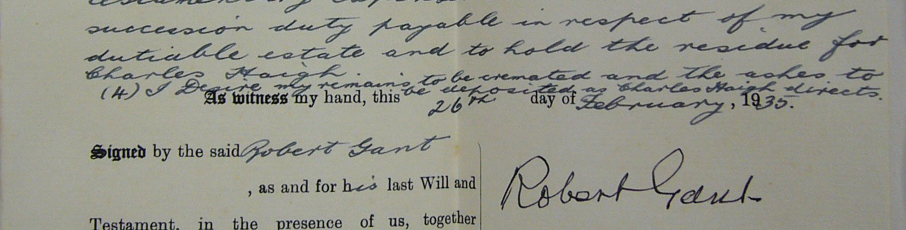 testamentary expenses
succession duty payable in respect of my
dutiable estate and to hold the residue for
Charles Haigh.
(4) I Desire my remains to be cremated and the ashes to
be deposited as Charles Haigh directs.
As witness my hand, this 26th day of February, 1935.
Signed by the said Robert Gant
, as and for his last Will and
Testament, in the presence of us, together
Robert Gant.